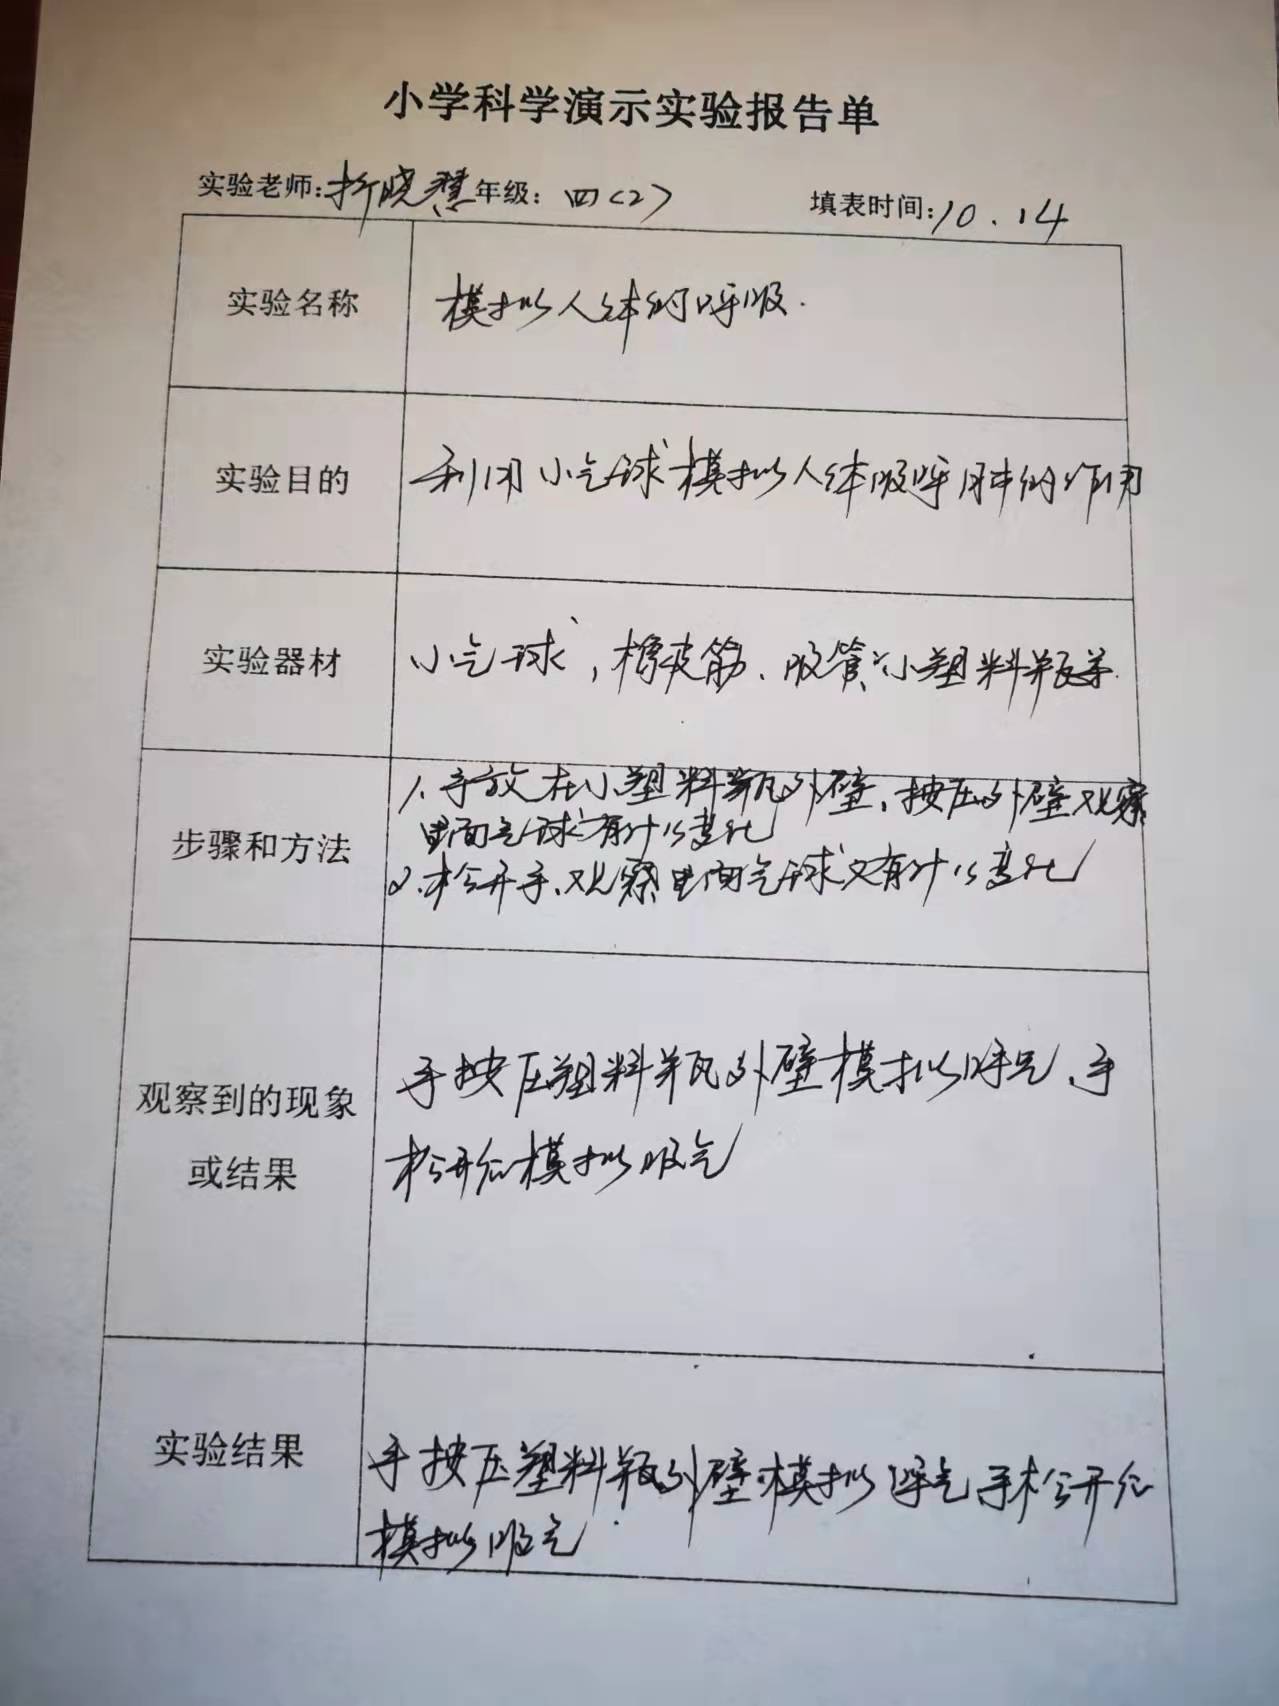 小学科学演示实验报告单
实验老师:折晓慧 年级: 四(2) 填表时间:10.14
实验名称 模拟人体的呼吸.
实验目的 利用小气球模拟人体吸呼 的作用
实验器材 小气球,橡皮筋、吸管、小塑料瓶等.
步骤和方法
1、手放在小塑料瓶外壁,按压外壁观察
里面气球有什么变化
2、松开手、观察里面气球又有什么变化
观察到的现象
或结果
手按压塑料瓶外壁模拟呼气、手
松开后模拟吸气
实验结果
手按压塑料瓶外壁模拟呼气手松开后
模拟吸气